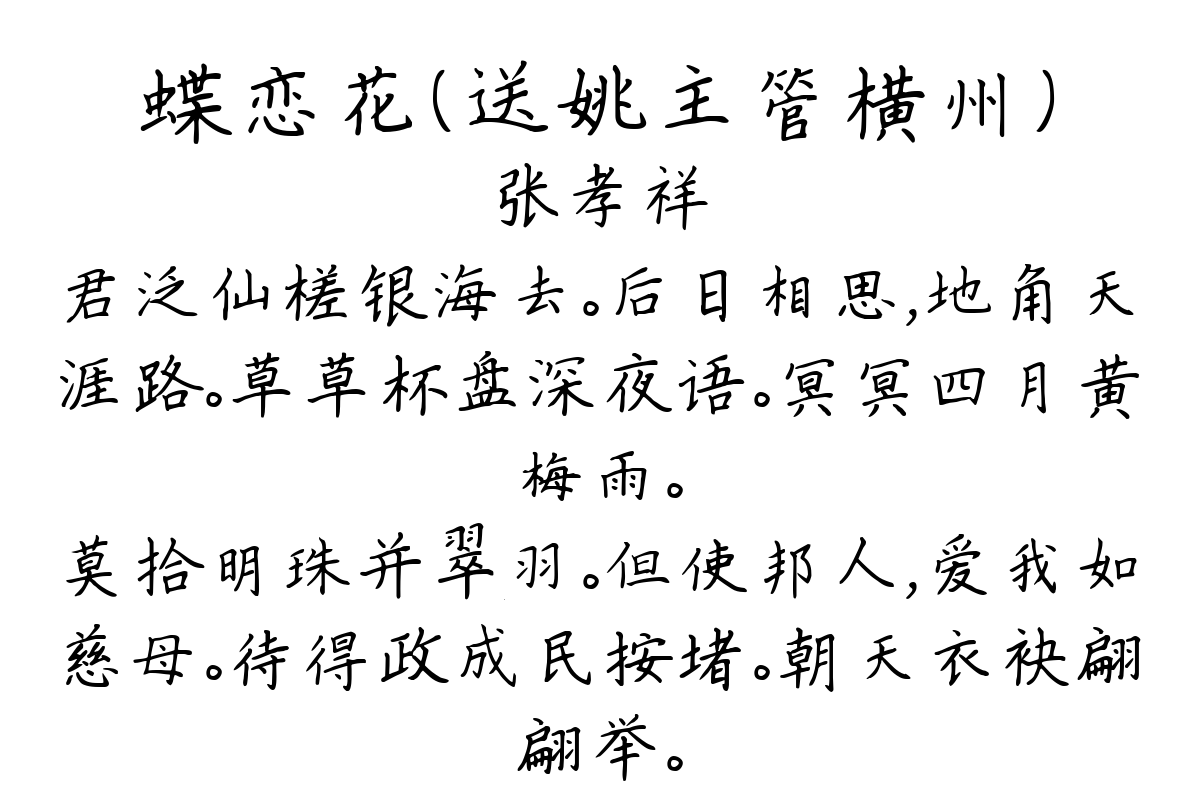 蝶恋花(送姚主管横州)
张孝祥
君泛仙槎银海去。后日相思,地角天
涯路。草草杯盘深夜语。冥冥四月黄
梅雨。
莫拾明珠并翠羽。但使邦人,爱我如
慈母。待得政成民按堵。朝天衣袂翩
翩举。